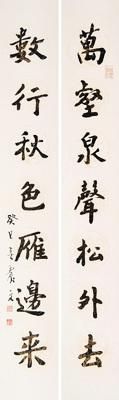 萬壑泉聲松外去
數行秋色雁邊来